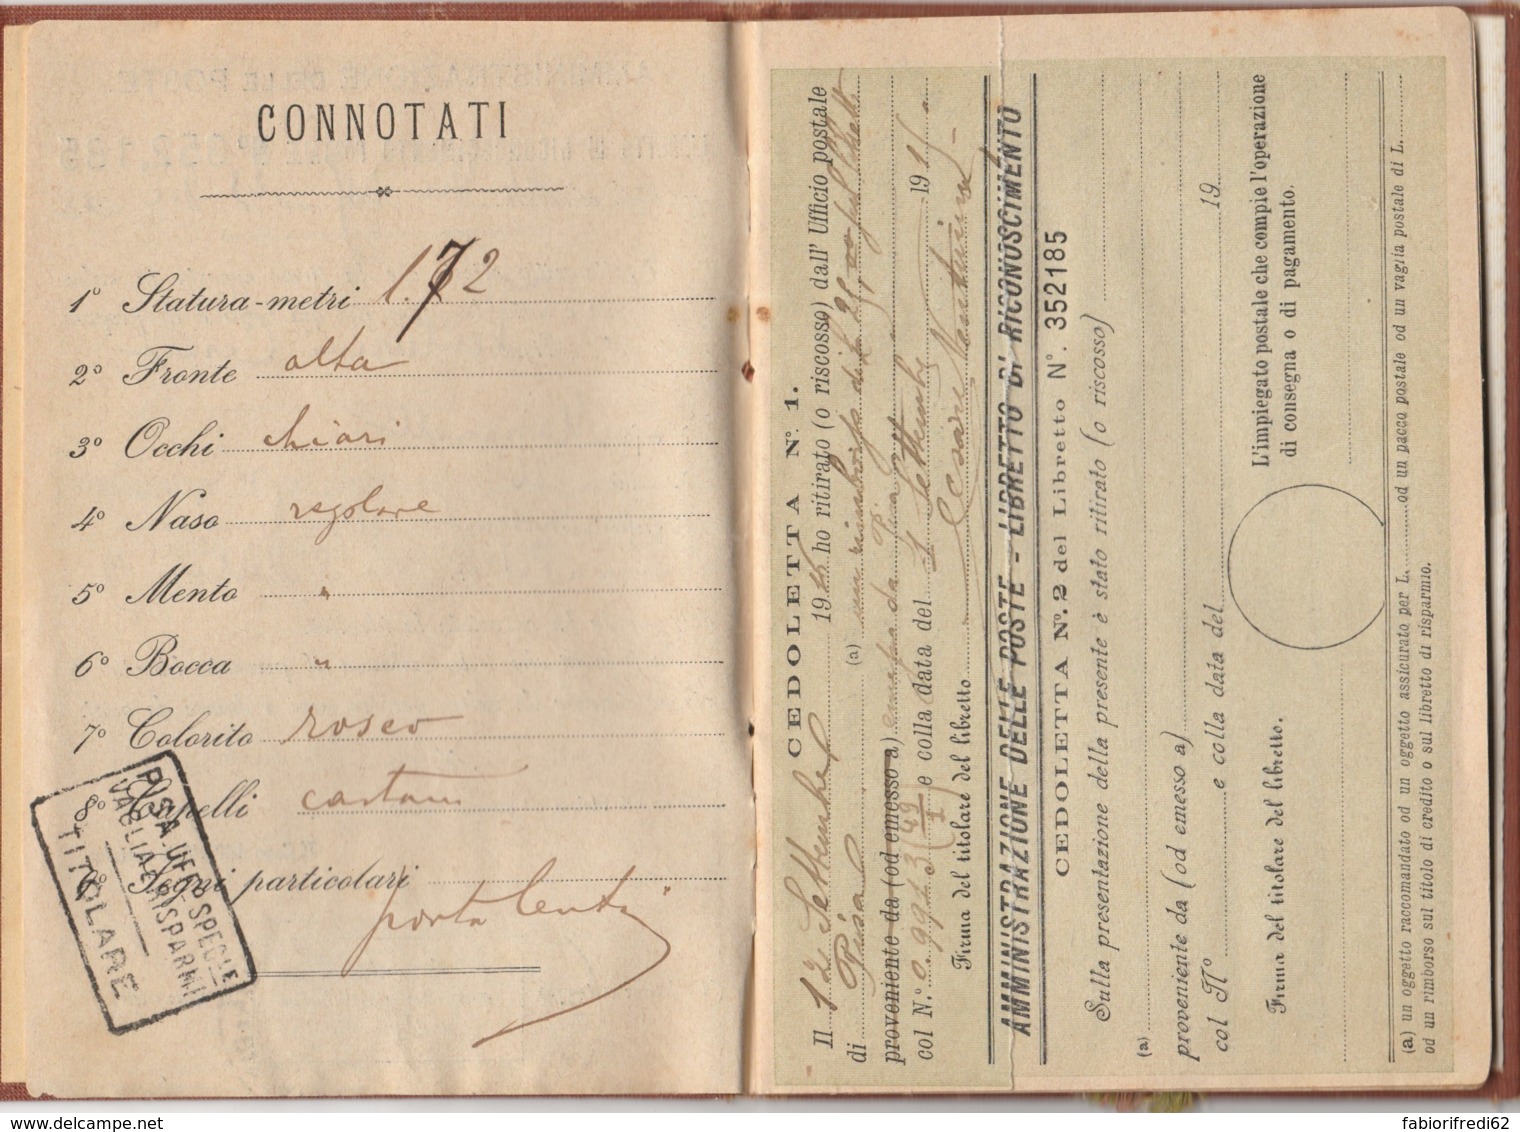 CONNOTATI
1º Statura-metri 1.72
2º Fronte alta
3º Occhi chiari
4º Naso regolare
5º Mento "
6º Bocca "
7º Colorito roseo
8º Capelli castani
9º Segni particolari
porta lenti
PISA UFF° SPECLE
VAGLIA E RISPARMI
TITOLARE
CEDOLETTA Nº. 1.
Il 12 Settembre 19 ho ritirato (o riscosso) dall' Ufficio postale
di Pisa (a) un rimborso di L 25,00 sul libretto
proveniente da (od emesso a) emesso da Pisa
col N.º e colla data del 1 Settembre 191
Firma del titolare del libretto Cesare Venturini
AMMINISTRAZIONE DELLE POSTE - LIBRETTO DI RICONOSCIMENTO
CEDOLETTA Nº. 2 del Libretto Nº. 352185
Sulla presentazione della presente è stato ritirato (o riscosso)
(a)
proveniente da (od emesso a)
col Nº e colla data del 19
L'impiegato postale che compie l'operazione
di consegna o di pagamento.
Firma del titolare del libretto.
(a) un oggetto raccomandato od un oggetto assicurato per L. od un pacco postale od un vaglia postale di L.
od un rimborso sul titolo di credito o sul libretto di risparmio.
fabiorifredi62